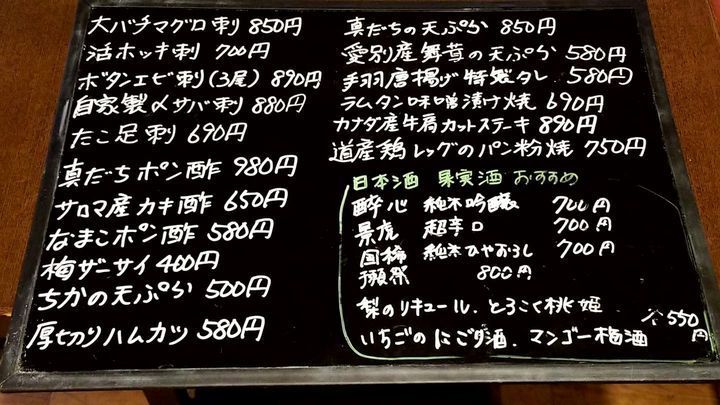 大バチマグロ刺 850円
活ホッキ刺 700円
ボタンエビ刺(3尾) 890円
自家製〆サバ刺 880円
たこ足刺 690円
真だちポン酢 980円
サロマ産カキ酢 650円
なまこポン酢 580円
梅ザーサイ 400円
ちかの天ぷら 500円
厚切りハムカツ 580円
真だちの天ぷら 850円
愛別産舞茸の天ぷら 580円
手羽唐揚げ特製タレ 580円
ラムタン味噌漬け焼 690円
カナダ産牛肩カットステーキ 890円
道産鶏レッグのパン粉焼 750円
日本酒 果実酒 おすすめ
酔心 純米吟醸 700円
景虎 超辛口 700円
国稀 純米ひやおろし 700円
獺祭 800円
梨のリキュール、とろこく桃姫
いちごのにごり酒、マンゴー梅酒
550円